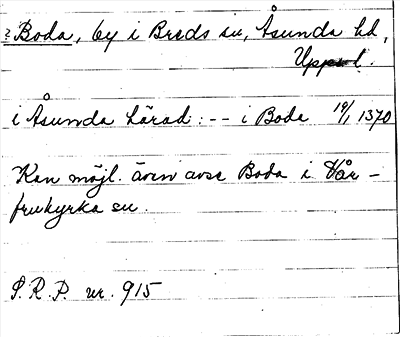 ? Boda, by i Breds sn, Åsunda hd,
Uppsal.
i Åsunda härad: -- i Boda 19/1 1370
Kan möjl. även avse Boda i Vår-
frukyrka sn.
S.R.P. nr. 915